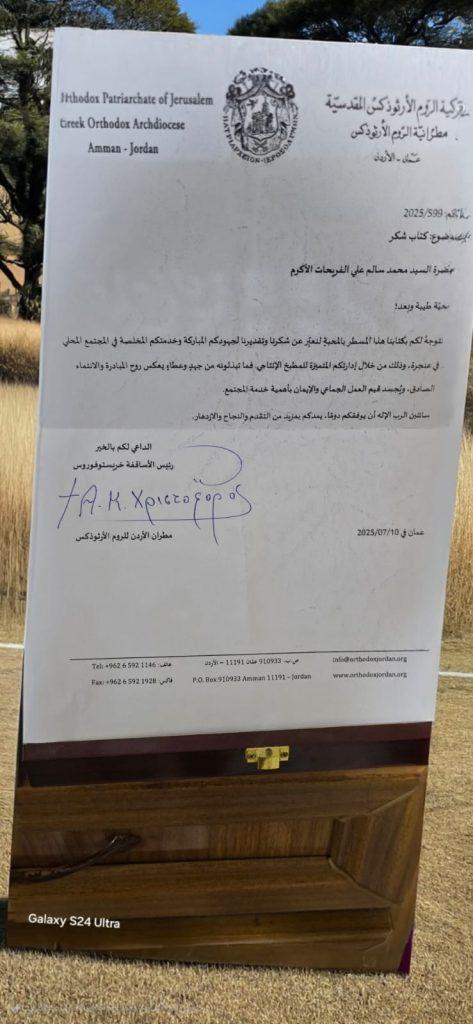 Orthodox Patriarchate of Jerusalem
Greek Orthodox Archdiocese
Amman - Jordan
الروم الأرثوذكس المقدسيّة
مطرانيّة الروم الأرثوذكس
عمّان - الأردن
2025/599
كتاب شكر
السيد محمد سالم علي الفريحات الأكرم
طيبة وبعد؛
نتوجهُ لكم بكتابنا هذا المسطر بالمحبةِ لنعبّر عن شكرنا وتقديرنا لجهودكم المباركة وخدمتكم المخلصة في المجتمع المحلي
في عنجرة، وذلك من خلال إدارتكم المتميّزة للمطبخ الإنتاجي. فما تبذلونه من جهدٍ وعطاءٍ يعكس روح المبادرة والانتماء
الصادق، ويُجسد قيم العمل الجماعي والإيمان بأهمية خدمة المجتمع.
سائلين الرب الإله أن يوفقكم دومًا، يمدكم بمزيد من التقدم والنجاح والازدهار.
الداعي لكم بالخير
رئيس الأساقفة خريستوفوروس
† A. K. Χριστοφόρος
مطران الأردن للروم الأرثوذكس
عمان في 2025/07/10
Tel: +962 6 592 1146 :هاتف
ص.ب. 910933 عمّان 11191 – الأردن
info@orthodoxjordan.org
Fax: +962 6 592 1928 :فاكس
P.O. Box 910933 Amman 11191 – Jordan
www.orthodoxjordan.org
Galaxy S24 Ultra